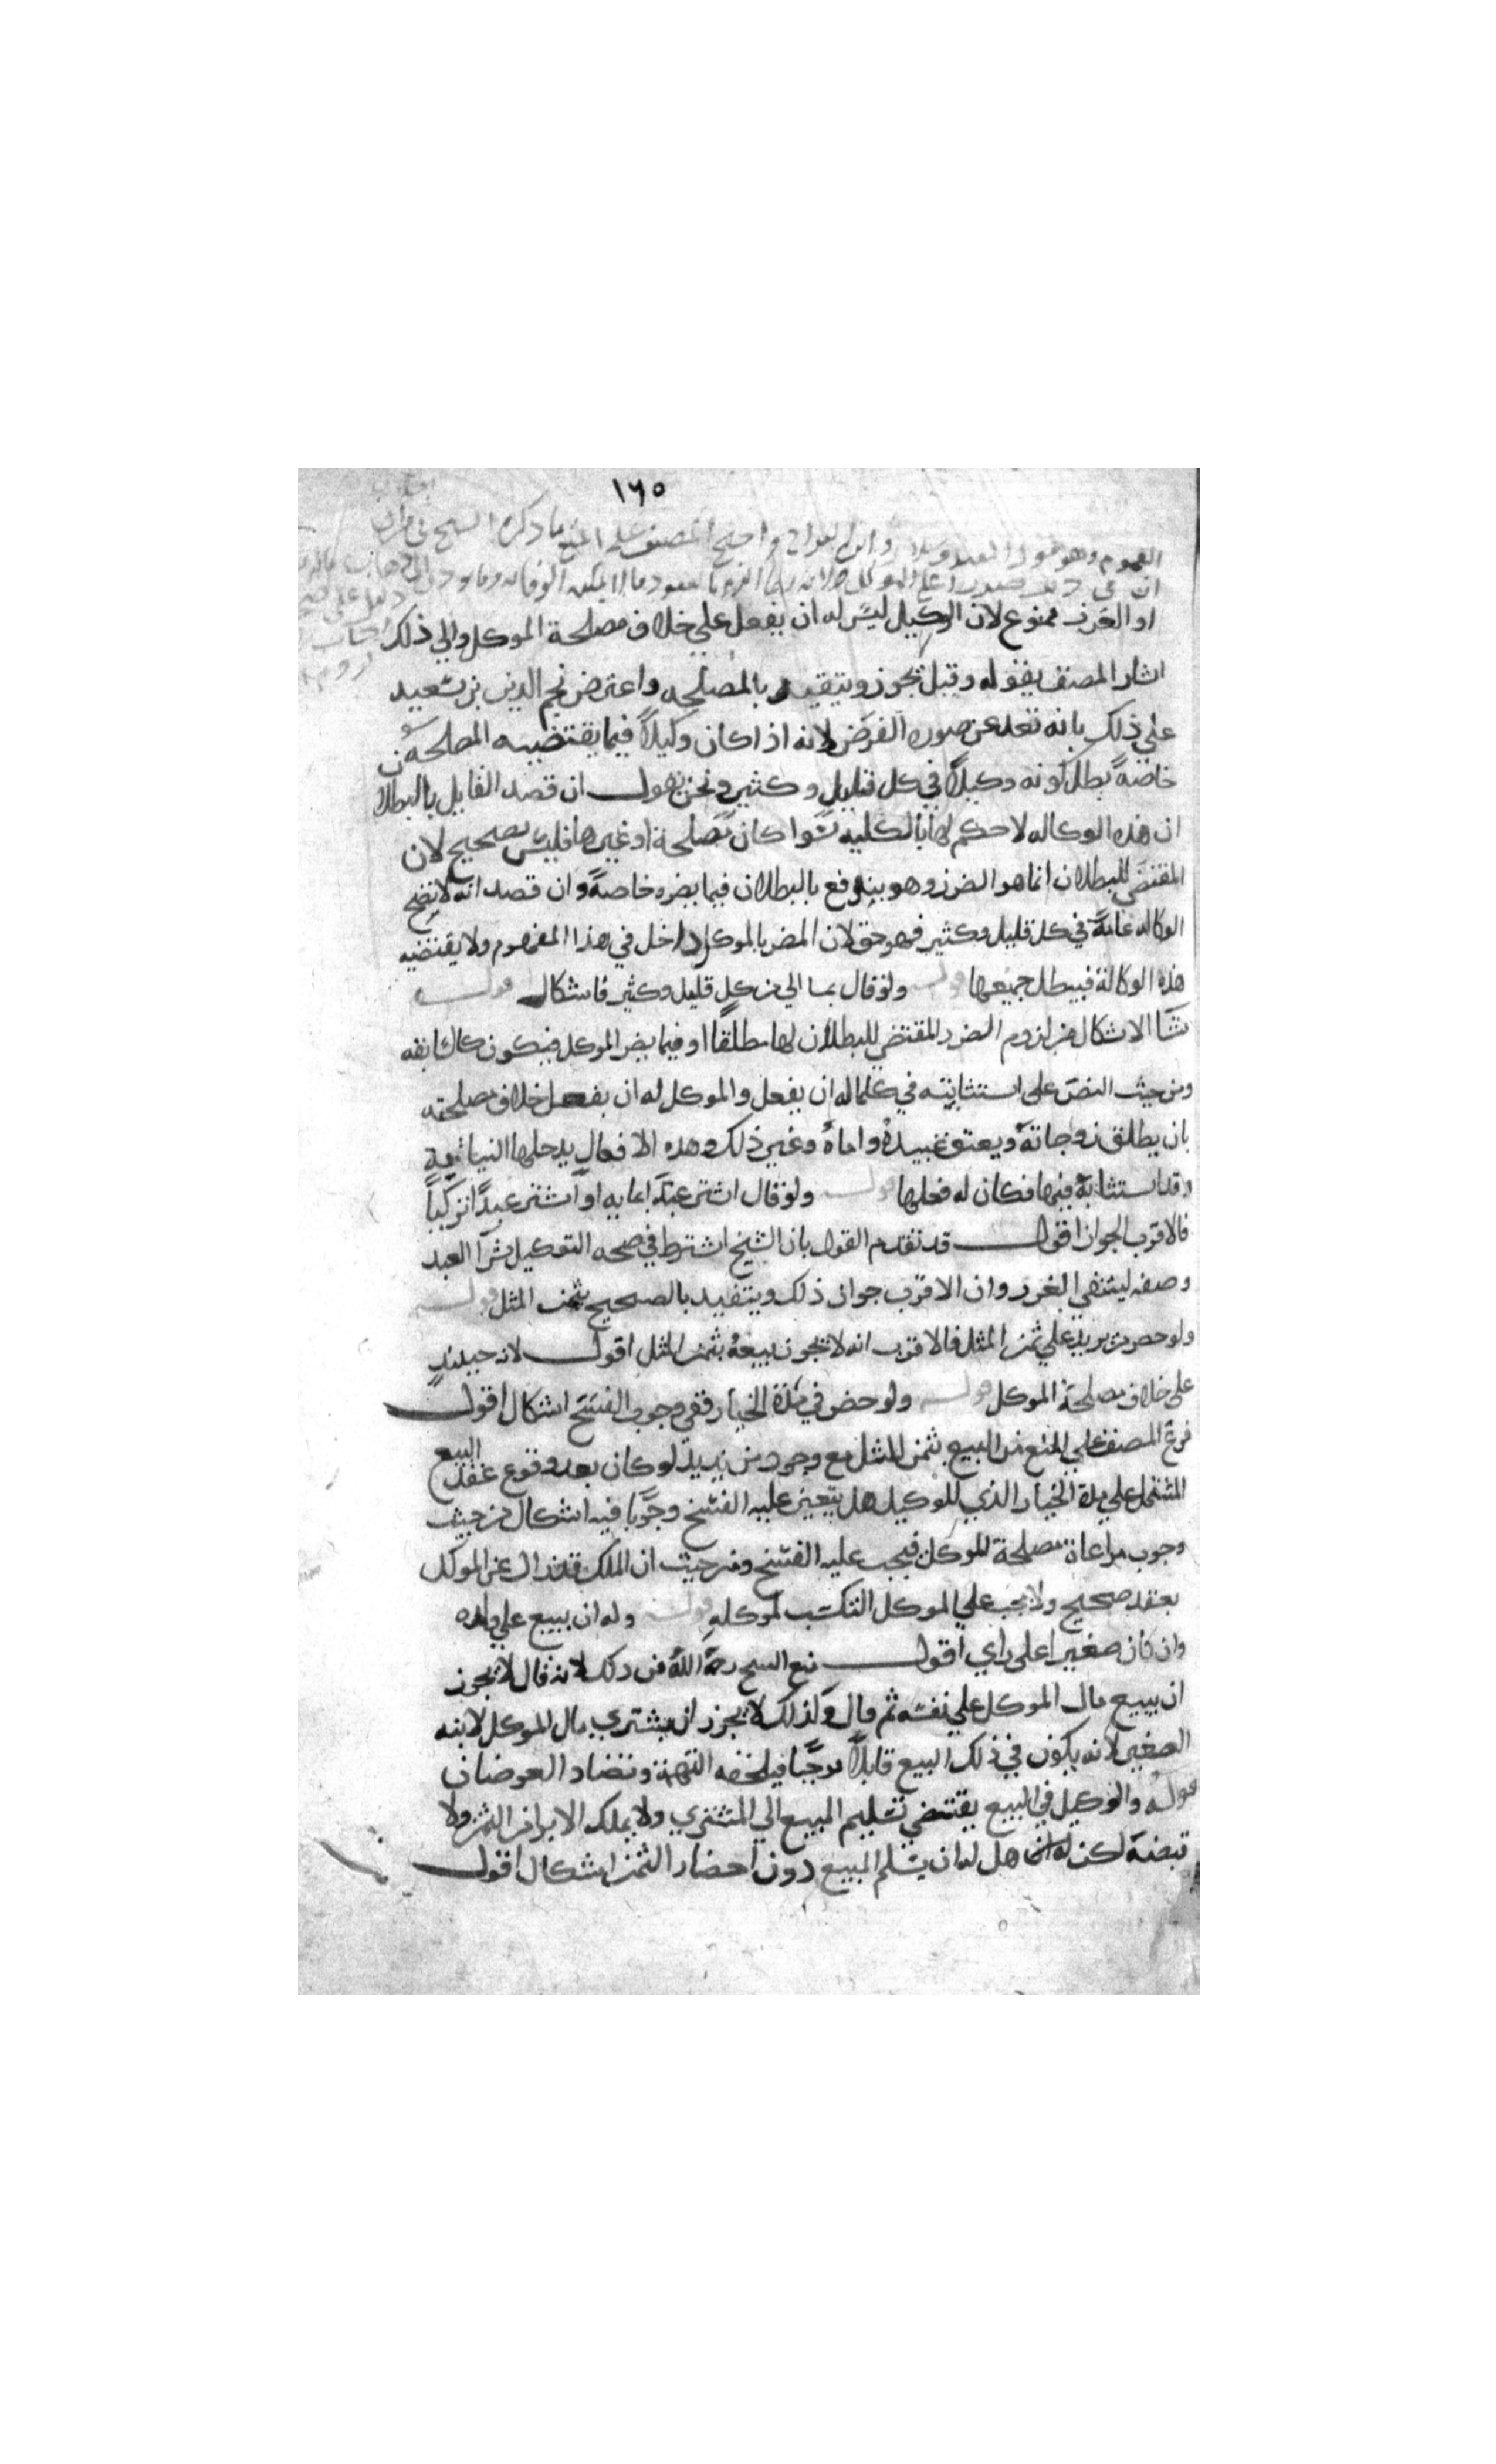 ١٦٥
العموم وهو قول المفيد وسلار وابن البراج واحتج المصنف على المنع بما ذكره الشيخ في
او الغرر ممنوع لان الوكيل ليس له ان يفعل علي خلاف مصلحة الموكل والي ذلك
اشار المصنف بقوله وقيل يجوز ويتقيد بالمصلحه واعترض نجم الدين بن سعيد
علي ذلك بانه تعد عن صوره الفرض لانه اذا كان وكيلاً فيما يقتضيه المصلحه
خاصةً بطل كونه وكيلاً في كل قليل وكثير ونحن نقول ان قصد القايل بالبطلان
ان هذه الوكاله لا حكم لها بالكليه سوا كان مصلحة او غيرها فليس بصحيح لان
المقتضي للبطلان انما هو الضرر وهو يندفع بالبطلان فيما يضره خاصةً وان قصد انه لا يصح
الوكاله عامة في كل قليل وكثير فهو حق لان المضر بالموكل داخل في هذا المفهوم ولا يقتضيه
هذه الوكالة فيبطل جميعها قوله ولو قال بما الي من كل قليل وكثير فاشكال قوله
نشا الاشكال من لزوم الضرر المقتضي للبطلان لها مطلقا او فيما يضر الموكل فيكون كالسابقه
ومن حيث النص على استنابته في كلما له ان يفعل والموكل له ان يفعل خلاف مصلحته
بان يطلق زوجاته ويعتق عبيده واماه وغير ذلك وهده الافعال يدخلها النيابة
وقد استنابه فيها فكان له فعلها قوله ولو قال اشتر عبدا بمايه او اشتر عبداً تركياً
فالاقرب الجواز اقول قد تقدم القول بان الشيخ اشترط في صحه التوكيل بشرا العبد
وصفه لينتفي الغرر وان الاقرب جواز ذلك ويتقيد بالصحيح بثمن المثل قوله
ولو حضر من يزيد علي ثمن المثل فالاقرب انه لا يجوز بيعه بثمن المثل اقول لانه حينيذٍ
على خلاف مصلحة الموكل قوله ولو حضر في مدة الخيار ففي وجوب الفسخ اشكال اقول
فرع المصنف علي المنع من البيع بثمن المثل مع وجود من يزيد لو كان بعد وقوع عقد البيع
المشتمل علي مدة الخيار الذي للوكيل هل يتعين عليه الفسخ وجوبا فيه اشكال من حيث
وجوب مراعاة مصلحة الموكل فيجب عليه الفسخ ومن حيث ان الملك قد زال عن الموكل
بعقد صحيح ولا يجب علي الموكل التكسب لموكله قوله وله ان يبيع علي ولده
وان كان صغيرا على راي اقول منع الشيخ رحمه الله من ذلك لانه قال لا يجوز
ان يبيع مال الموكل علي نفسه ثم قال وكذلك لا يجوز ان يشتري مال الموكل لابنه
الصغير لانه يكون في ذلك البيع قابلاً موجبا فيلحقه التهمة وتضاد الغرضان
قوله والوكيل في البيع يقتضي تسليم المبيع الي المشتري ولا يملك الابرا من الثمن ولا
قبضه لكن هل له ان يسلم المبيع دون احضار الثمن اشكال اقول